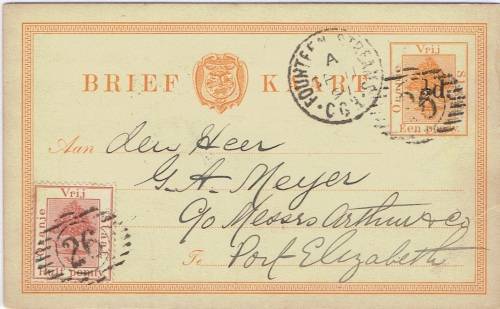 BRIEF KAART
FOURTEEN STREAMS
A
C.G.H.
Vrij
Oranje
½d.
Een penny.
Aan den Heer
G. A. Meyer
c/o Messrs Arthur & Co
Te Port Elizabeth
Vrij
Oranje
Half penny
26